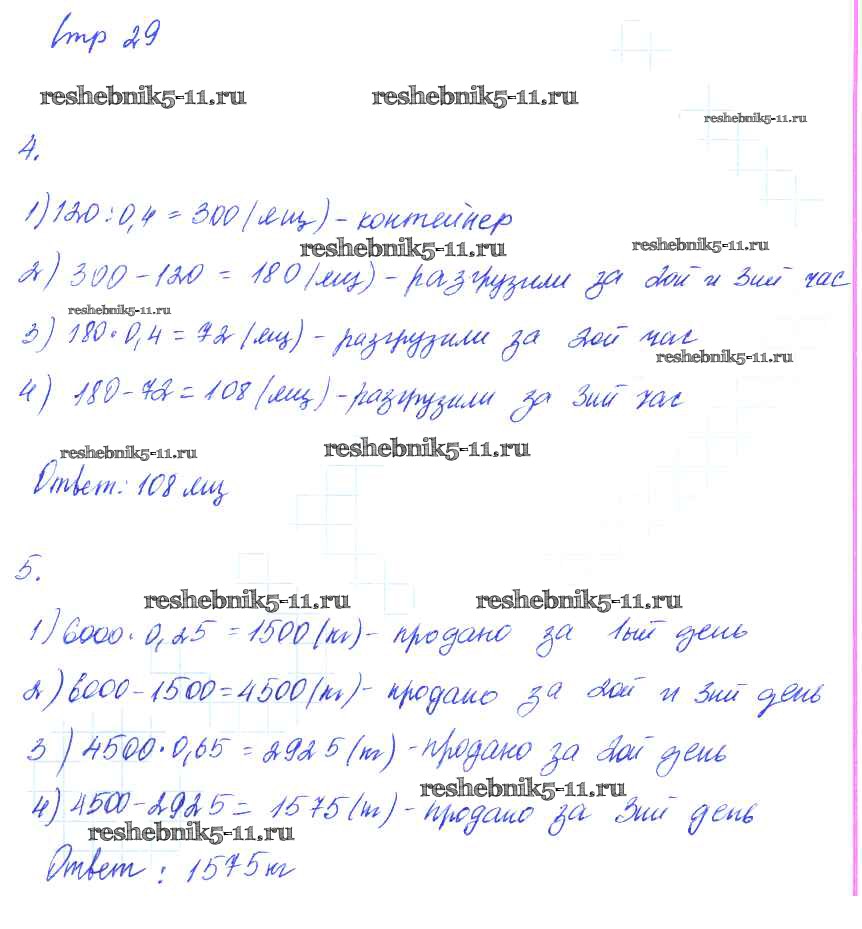 стр 29
reshebnik5-11.ru reshebnik5-11.ru
reshebnik5-11.ru
4.
1) 120 : 0,4 = 300 (ящ) - контейнер
reshebnik5-11.ru reshebnik5-11.ru
2) 300 - 120 = 180 (ящ) - разгрузили за 2ой и 3ий час
reshebnik5-11.ru
3) 180 · 0,4 = 72 (ящ) - разгрузили за 2ой час
reshebnik5-11.ru
4) 180 - 72 = 108 (ящ) - разгрузили за 3ий час
reshebnik5-11.ru reshebnik5-11.ru
Ответ: 108 ящ
5.
reshebnik5-11.ru reshebnik5-11.ru
1) 6000 · 0,25 = 1500 (кг) - продано за 1ый день
2) 6000 - 1500 = 4500 (кг) - продано за 2ой и 3ий день
3) 4500 · 0,65 = 2925 (кг) - продано за 2ой день
reshebnik5-11.ru
4) 4500 - 2925 = 1575 (кг) - продано за 3ий день
reshebnik5-11.ru
Ответ: 1575 кг